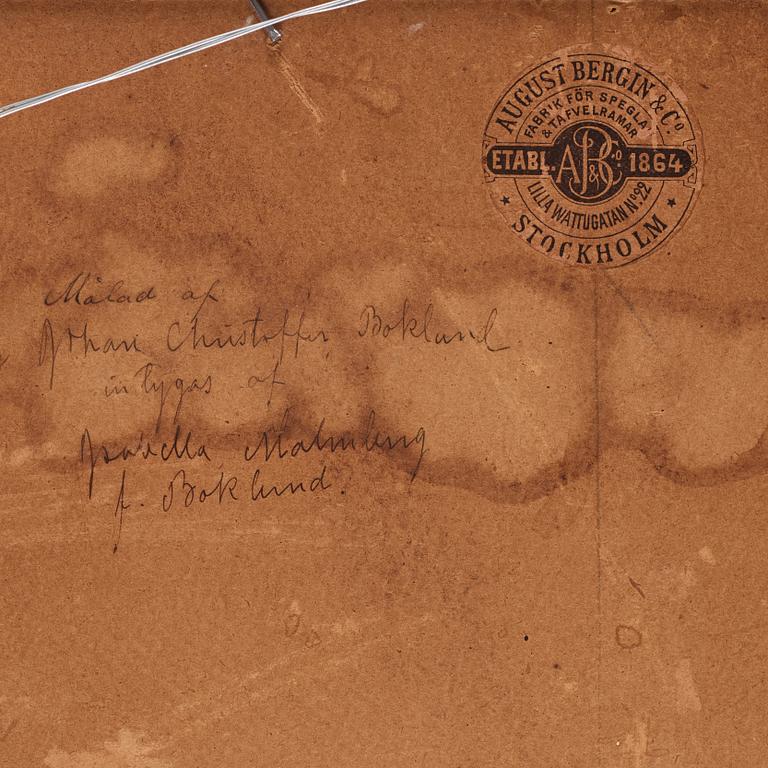 AUGUST BERGIN & Cº
FABRIK FÖR SPEGLAR
& TAFVELRAMAR
ETABL. AB&Cº 1864
LILLA WATTUGATAN Nº 22
STOCKHOLM
Målad af
Johan Christoffer Boklund
intygas af
Isabella Malmberg
f. Boklund.